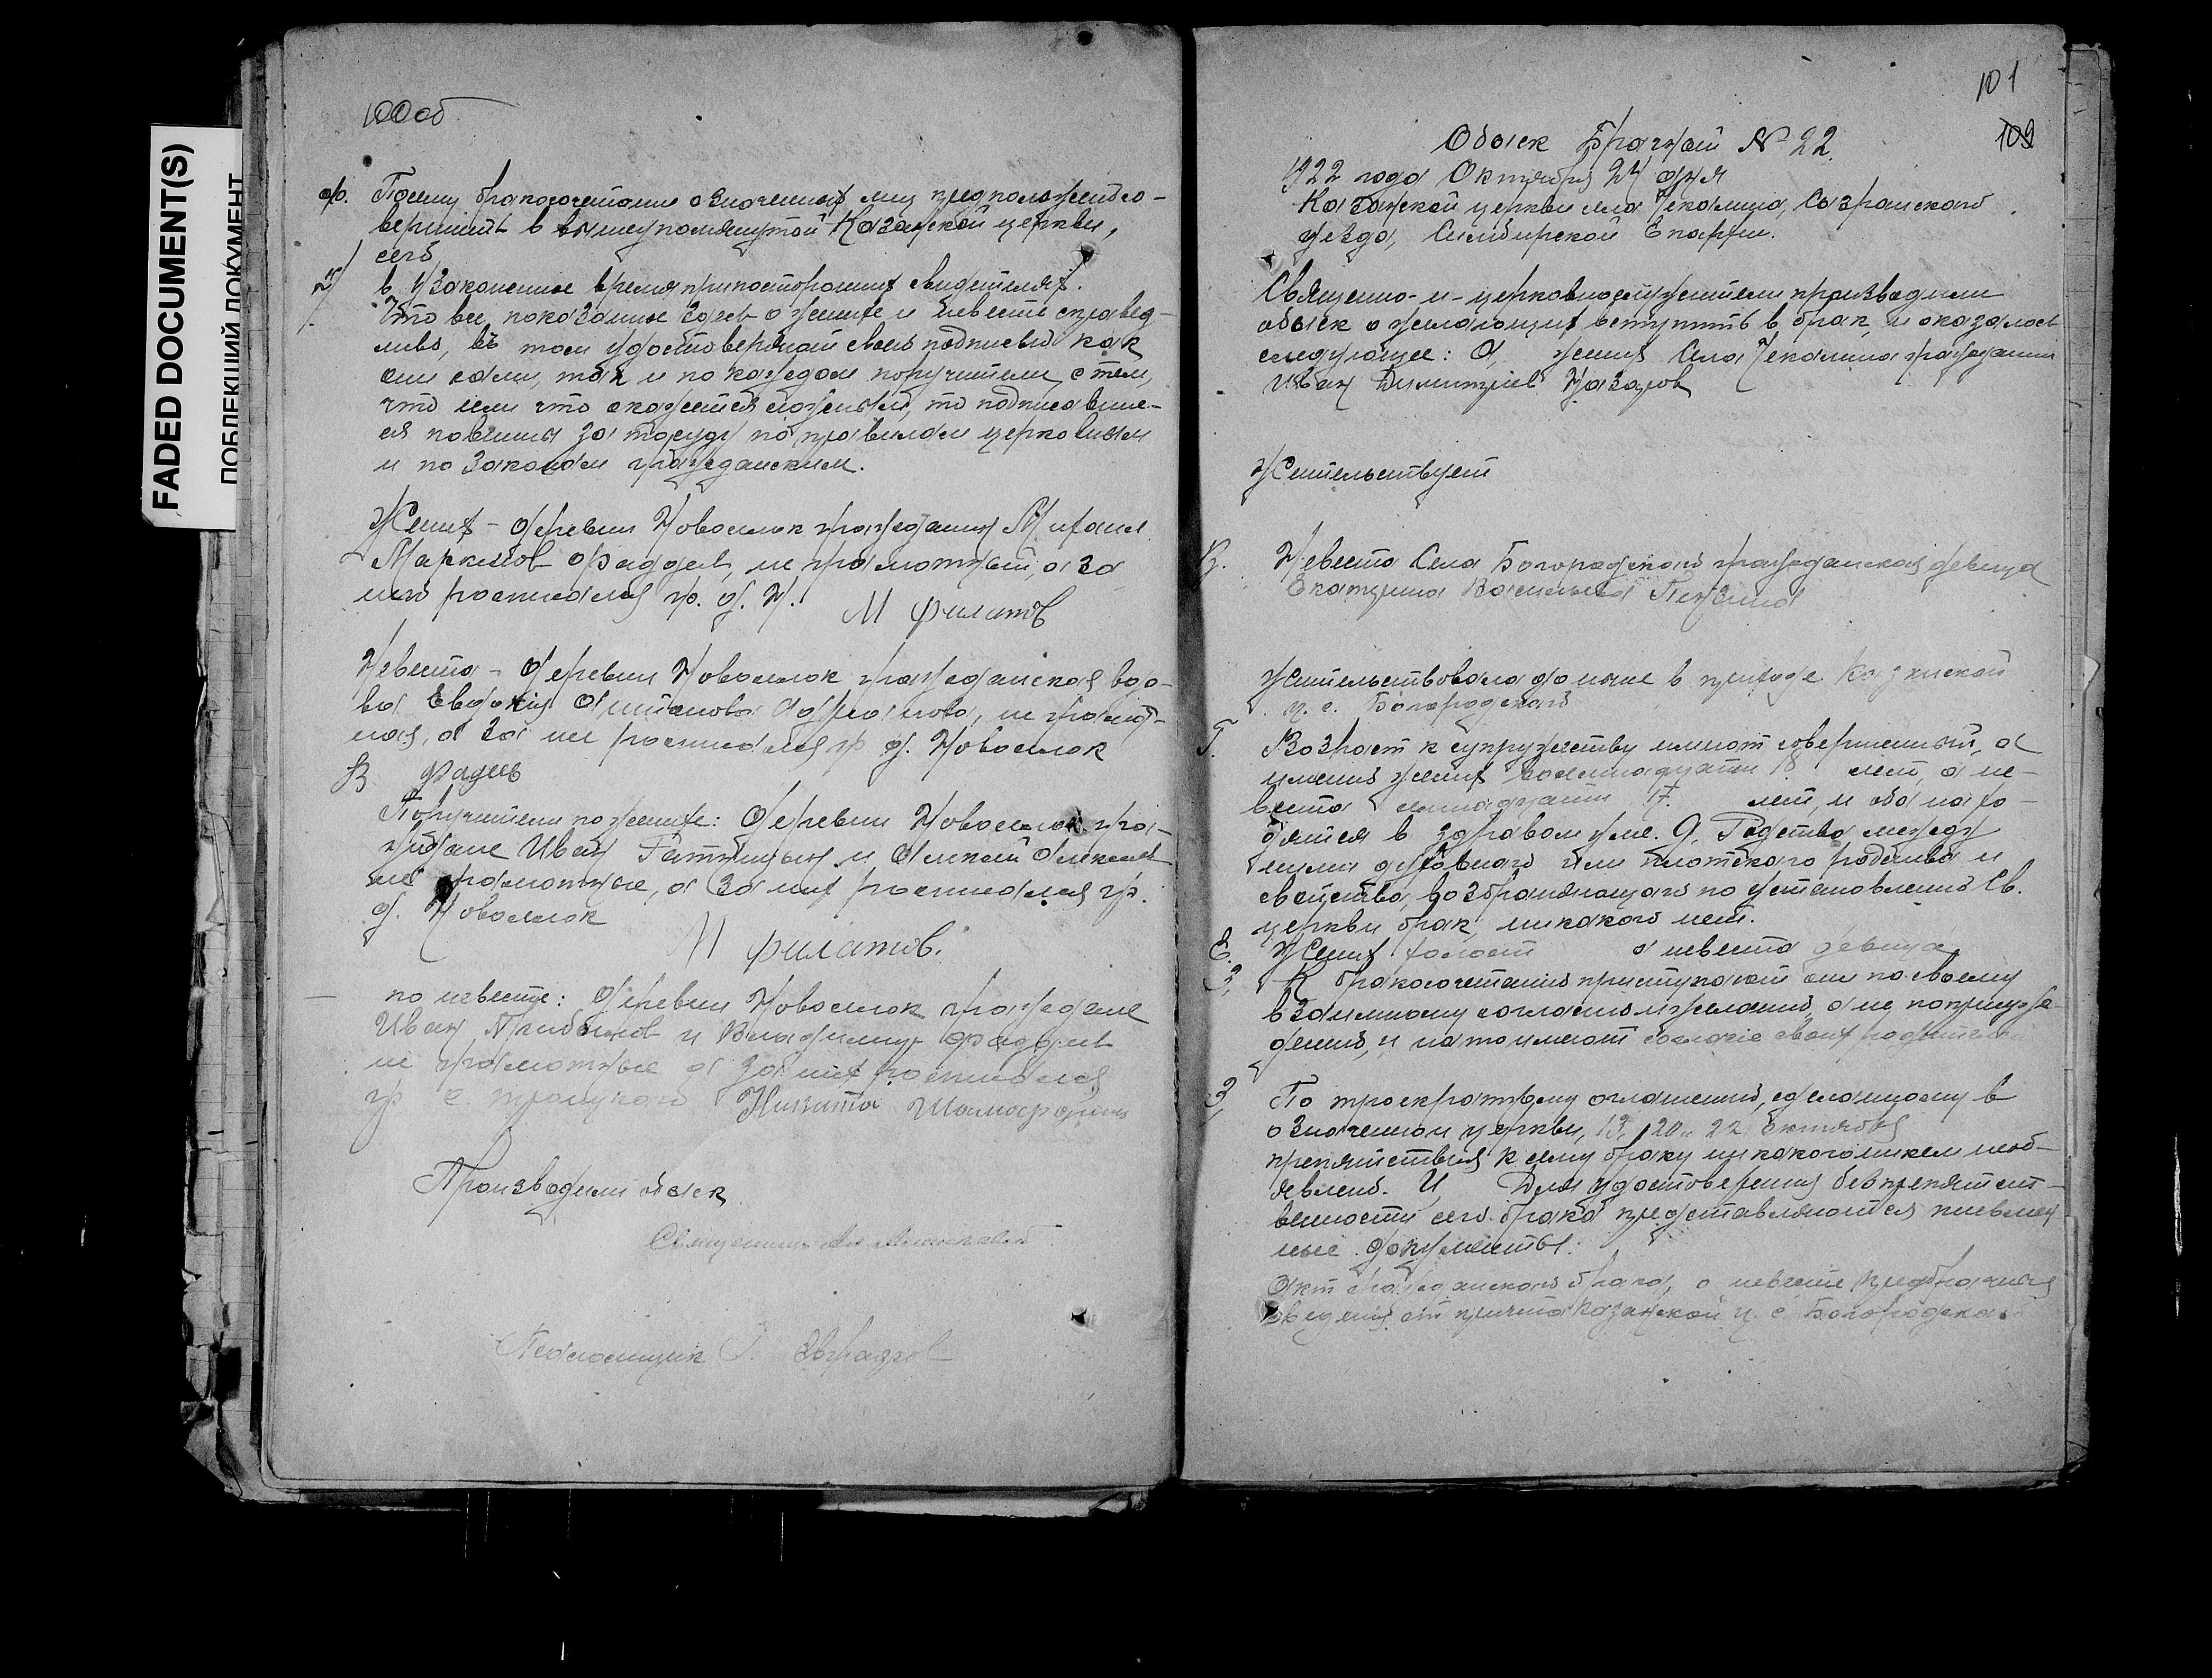 FADED DOCUMENT(S)
ПОБЛЕКШИЙ ДОКУМЕНТ
100 об
ф. Посему бракосочетание означенных лиц предположено со-
вершить в вышеупомянутой Казанской церкви,
сего
в узаконенное время при посторонних свидетелях.
Что все, показанное здесь о женихе и невесте справед-
ливо, въ том удостоверяют своею подписью как
они сами, так и по каждом поручители, с тем,
что если что окажется ложным, то подписавшие-
ся повинны за то суду по правилам церковным
и по законам гражданским.
Жених - деревни Новоселок гражданин Михаил
Маркелов Фаддеев, не грамотный, а за
него росписался гр. д. Н. М Филатов
Невеста - деревни Новоселок гражданская вдо-
ва Евдокия, не грамот-
ная, а за нее росписался гр д. Новоселок
В Фадеев
Поручители по женихе: деревни Новоселок гра-
ждане Иван и Алексей Алексеев
не грамотные, а за них росписался гр.
д. Новоселок
М Филатов.
по невесте: деревни Новоселок граждане
Иван и Владимир Фаддеев
не грамотные а за них росписался
гр с. Троицкого Никита
Производили обыск
Священник
Псаломщик
101
109
Обыск Брачный № 22.
1922 года Октября 24 дня
Казанской церкви села Чекалина, Сызранского
уезда, Симбирской Епархии.
Священно-и-церковнослужители производили
обыск о желающих вступить в брак, и оказалось
следующее: А, жених Села Чекалина гражданин
Иван Димитриев Назаров
Жительствует
В. Невеста Села Богородского гражданская девица
Екатерина Васильева
Жительствовала доныне в приходе Казанской
ц. с. Богородского
Г. Возраст к супружеству имеют совершенный, а
именно жених восемнадцати 18 лет, а не-
веста семнадцати 17. лет, и оба нахо-
дятся в здравом уме. Д, Родства между
ними духовного или плотского родства и
свойства, возбраняющаго по установлению Св.
церкви брак, никакого нет.
Е. Жених холост а невеста девица
З, К бракосочетанию приступают они по своему
взаимному согласию и желанию, а не по принуж-
дению, и на то имеют согласие своих родителей
З, По троекратному оглашению, сделанному в
означенной церкви, 13, 20 и 22 Октября
препятствия к сему браку никакого никем необ-
явлено. И, Для удостоверения безпрепятст-
венности сего брака представляются письмен
ные документы:
Акт гражданского брака, о невесте предбрачные
сведения от причта Казанской ц. с. Богородска.